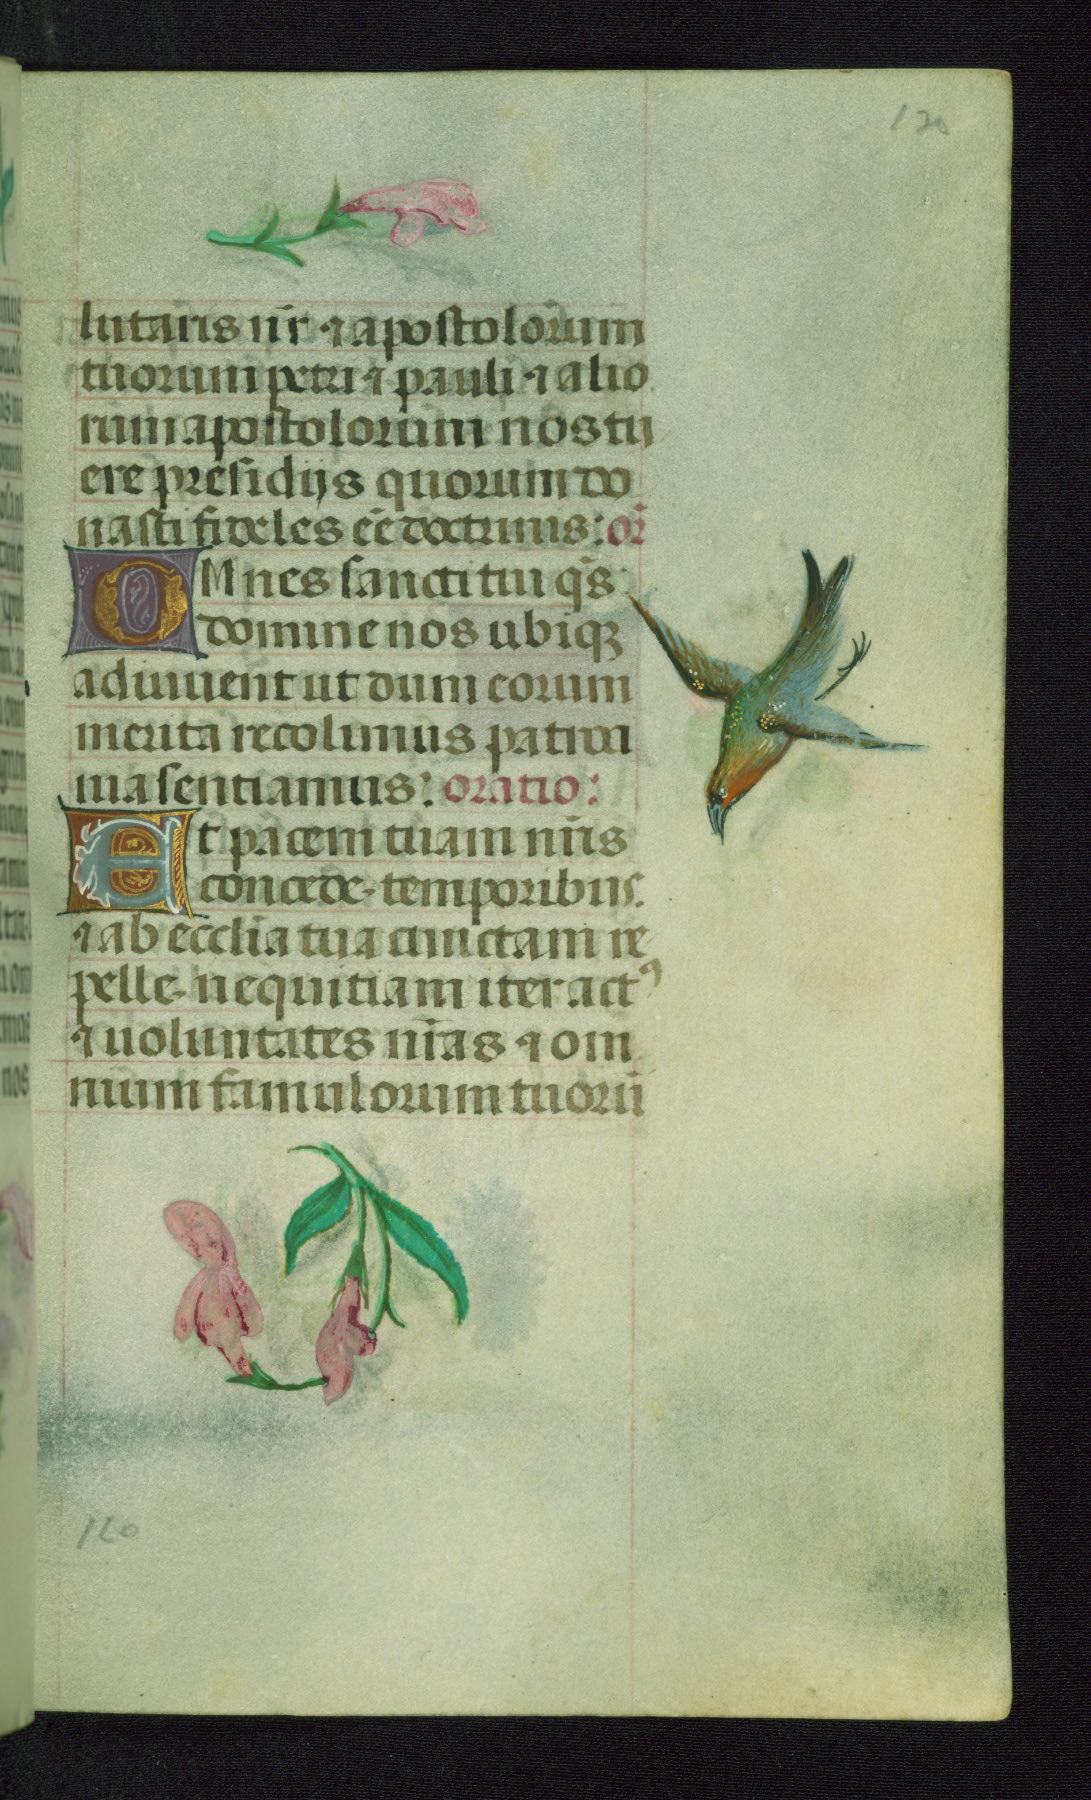 120
lutaris nr̄ ⁊ apostolorum
tuorum petri ⁊ pauli ⁊ alio
rum apostolorum nos tu
ere presidijs quorum do
nasti fideles eē doctrinis: or̄
OMnes sancti tui q̄s
domine nos ubiqꝫ
adiuuent ut dum eorum
merita recolimus patroci
nia sentiamus: oratio:
Et pacem tuam nr̄is
concede temporibus.
⁊ ab ecclīa tua cunctam re
pelle nequitiam iter actꝰ
⁊ uoluntates nr̄as ⁊ om
nium famulorum tuorū
120